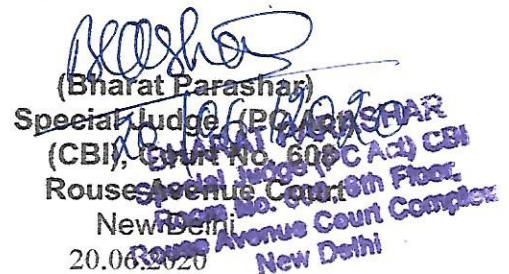 (Bharat Parashar)
Special Judge, (PC Act)
(CBI), Court No. 608
Rouse Avenue Court
New Delhi
20.06.2020
20/06/2020
BHARAT PARASHAR
Special Judge (PC Act) CBI
Room No. 608, 6th Floor,
Rouse Avenue Court Complex
New Delhi